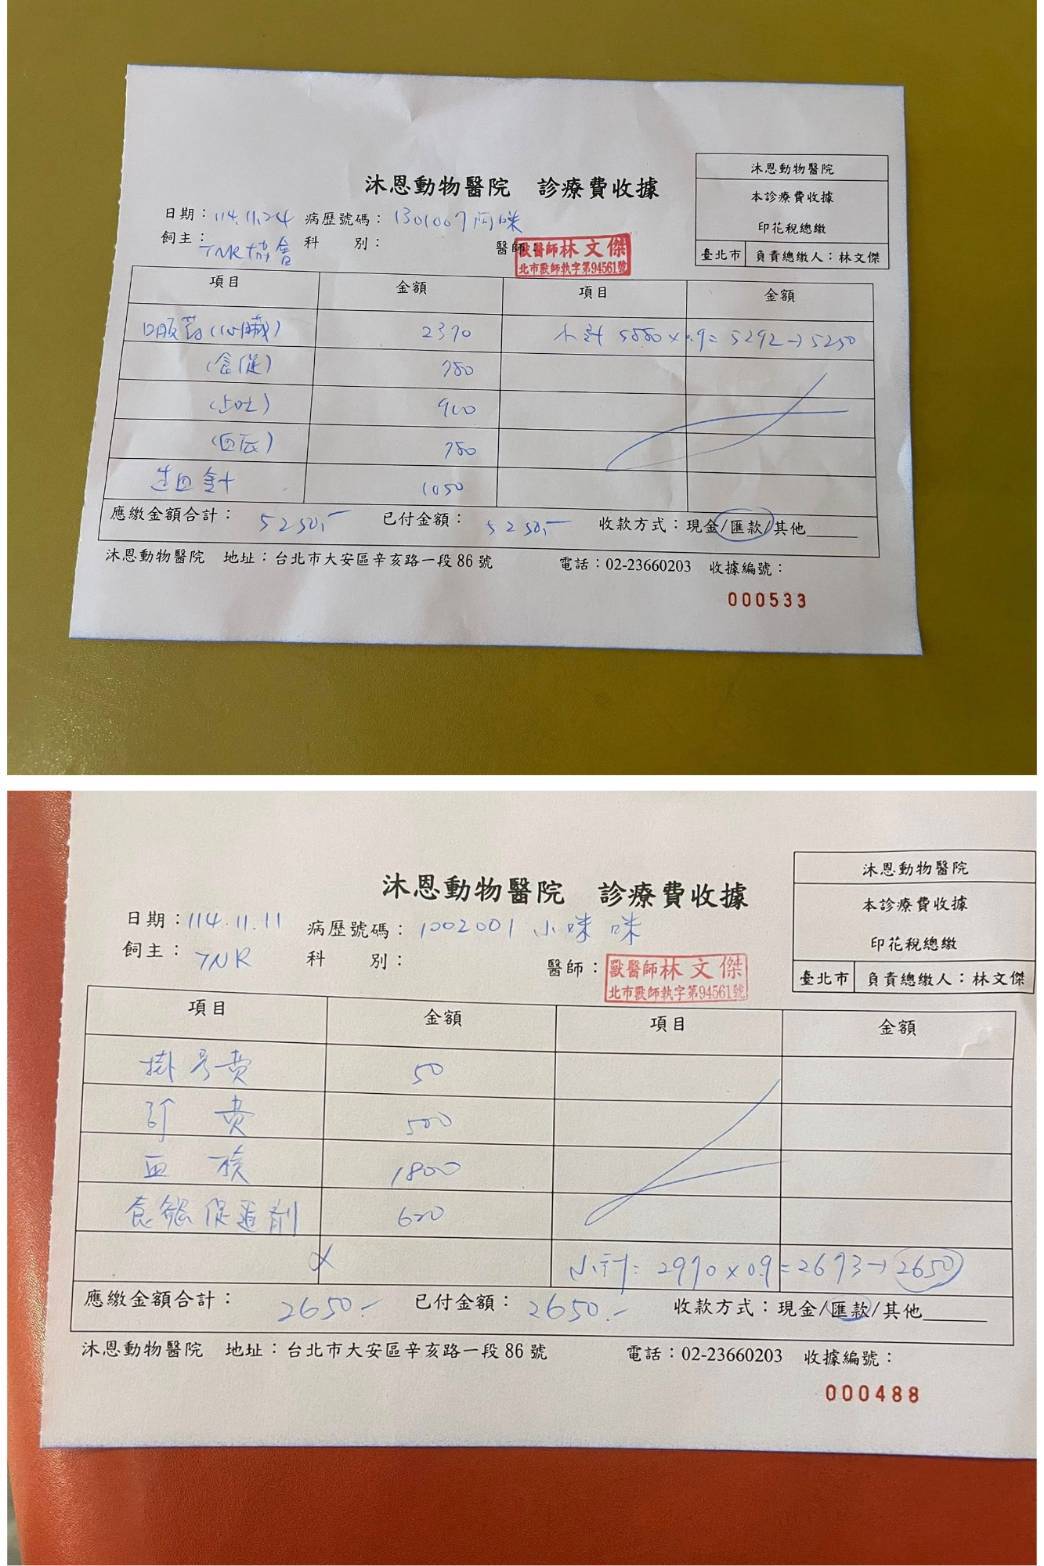 沐恩動物醫院 診療費收據
沐恩動物醫院
本診療費收據
印花稅總繳
臺北市 負責總繳人：林文傑
日期：114.11.24 病歷號碼：1301067 阿咪
飼主：TNR協會 科 別： 醫師：
獸醫師林文傑
北市獸師執字第94561號
項目 金額 項目 金額
口服藥(心臟) 2370 小計 5880×0.9=5292→5250
(食促) 780
(止吐) 900
780
造血針 1050
應繳金額合計：5250,- 已付金額：5250,- 收款方式：現金/匯款/其他
沐恩動物醫院 地址：台北市大安區辛亥路一段86號 電話：02-23660203 收據編號：
000533
沐恩動物醫院 診療費收據
沐恩動物醫院
本診療費收據
印花稅總繳
臺北市 負責總繳人：林文傑
日期：114.11.11 病歷號碼：1002001 小咪咪
飼主：TNR 科 別： 醫師：
獸醫師林文傑
北市獸師執字第94561號
項目 金額 項目 金額
掛号費 50
診費 500
血檢 1800
食慾促進劑 620
小計：2970×0.9=2673→2650
應繳金額合計：2650.- 已付金額：2650.- 收款方式：現金/匯款/其他
沐恩動物醫院 地址：台北市大安區辛亥路一段86號 電話：02-23660203 收據編號：
000488